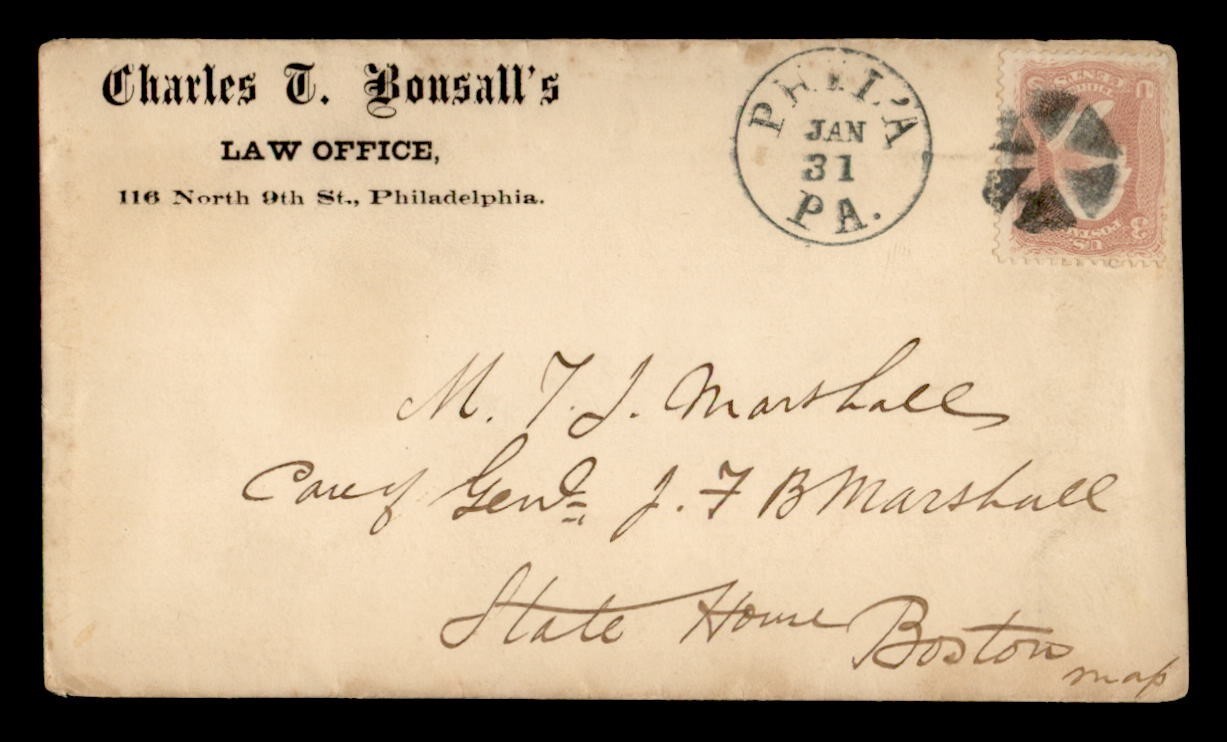 Charles T. Bonsall's
LAW OFFICE,
116 North 9th St., Philadelphia.
PHIL'A
JAN
31
PA.
U 3
THREE CENTS
U.S. POSTAGE
3
M. T. J. Marshall
Care of Genl. J. F B Marshall
State House Boston
Mass